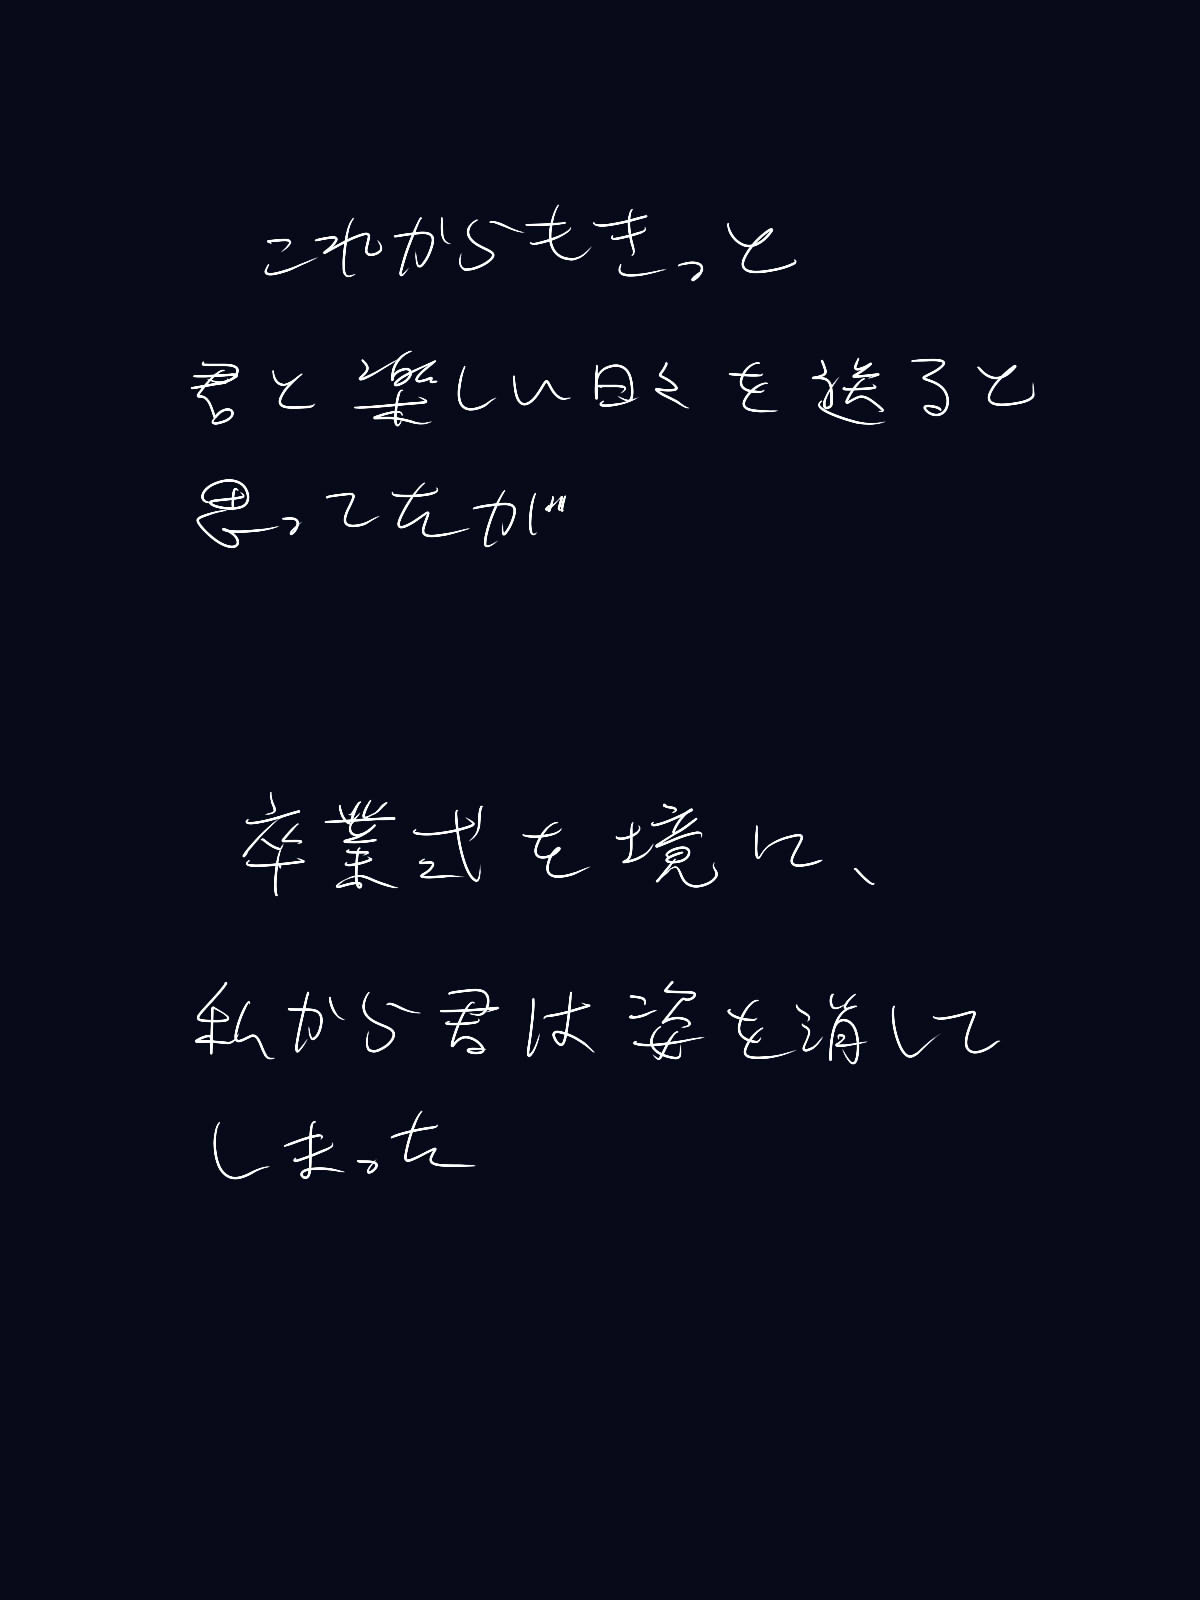 これからもきっと
君と楽しい日々を送ると
思ってたが
卒業式を境に、
私から君は姿を消して
しまった